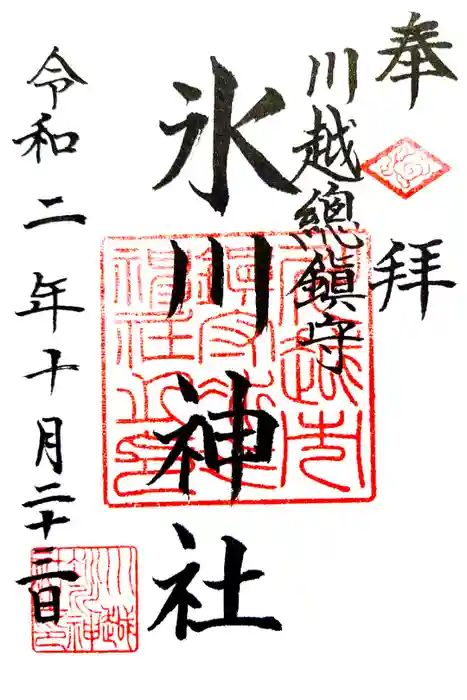 奉拝
川越總鎮守
氷川神社
令和二年十月二十三日